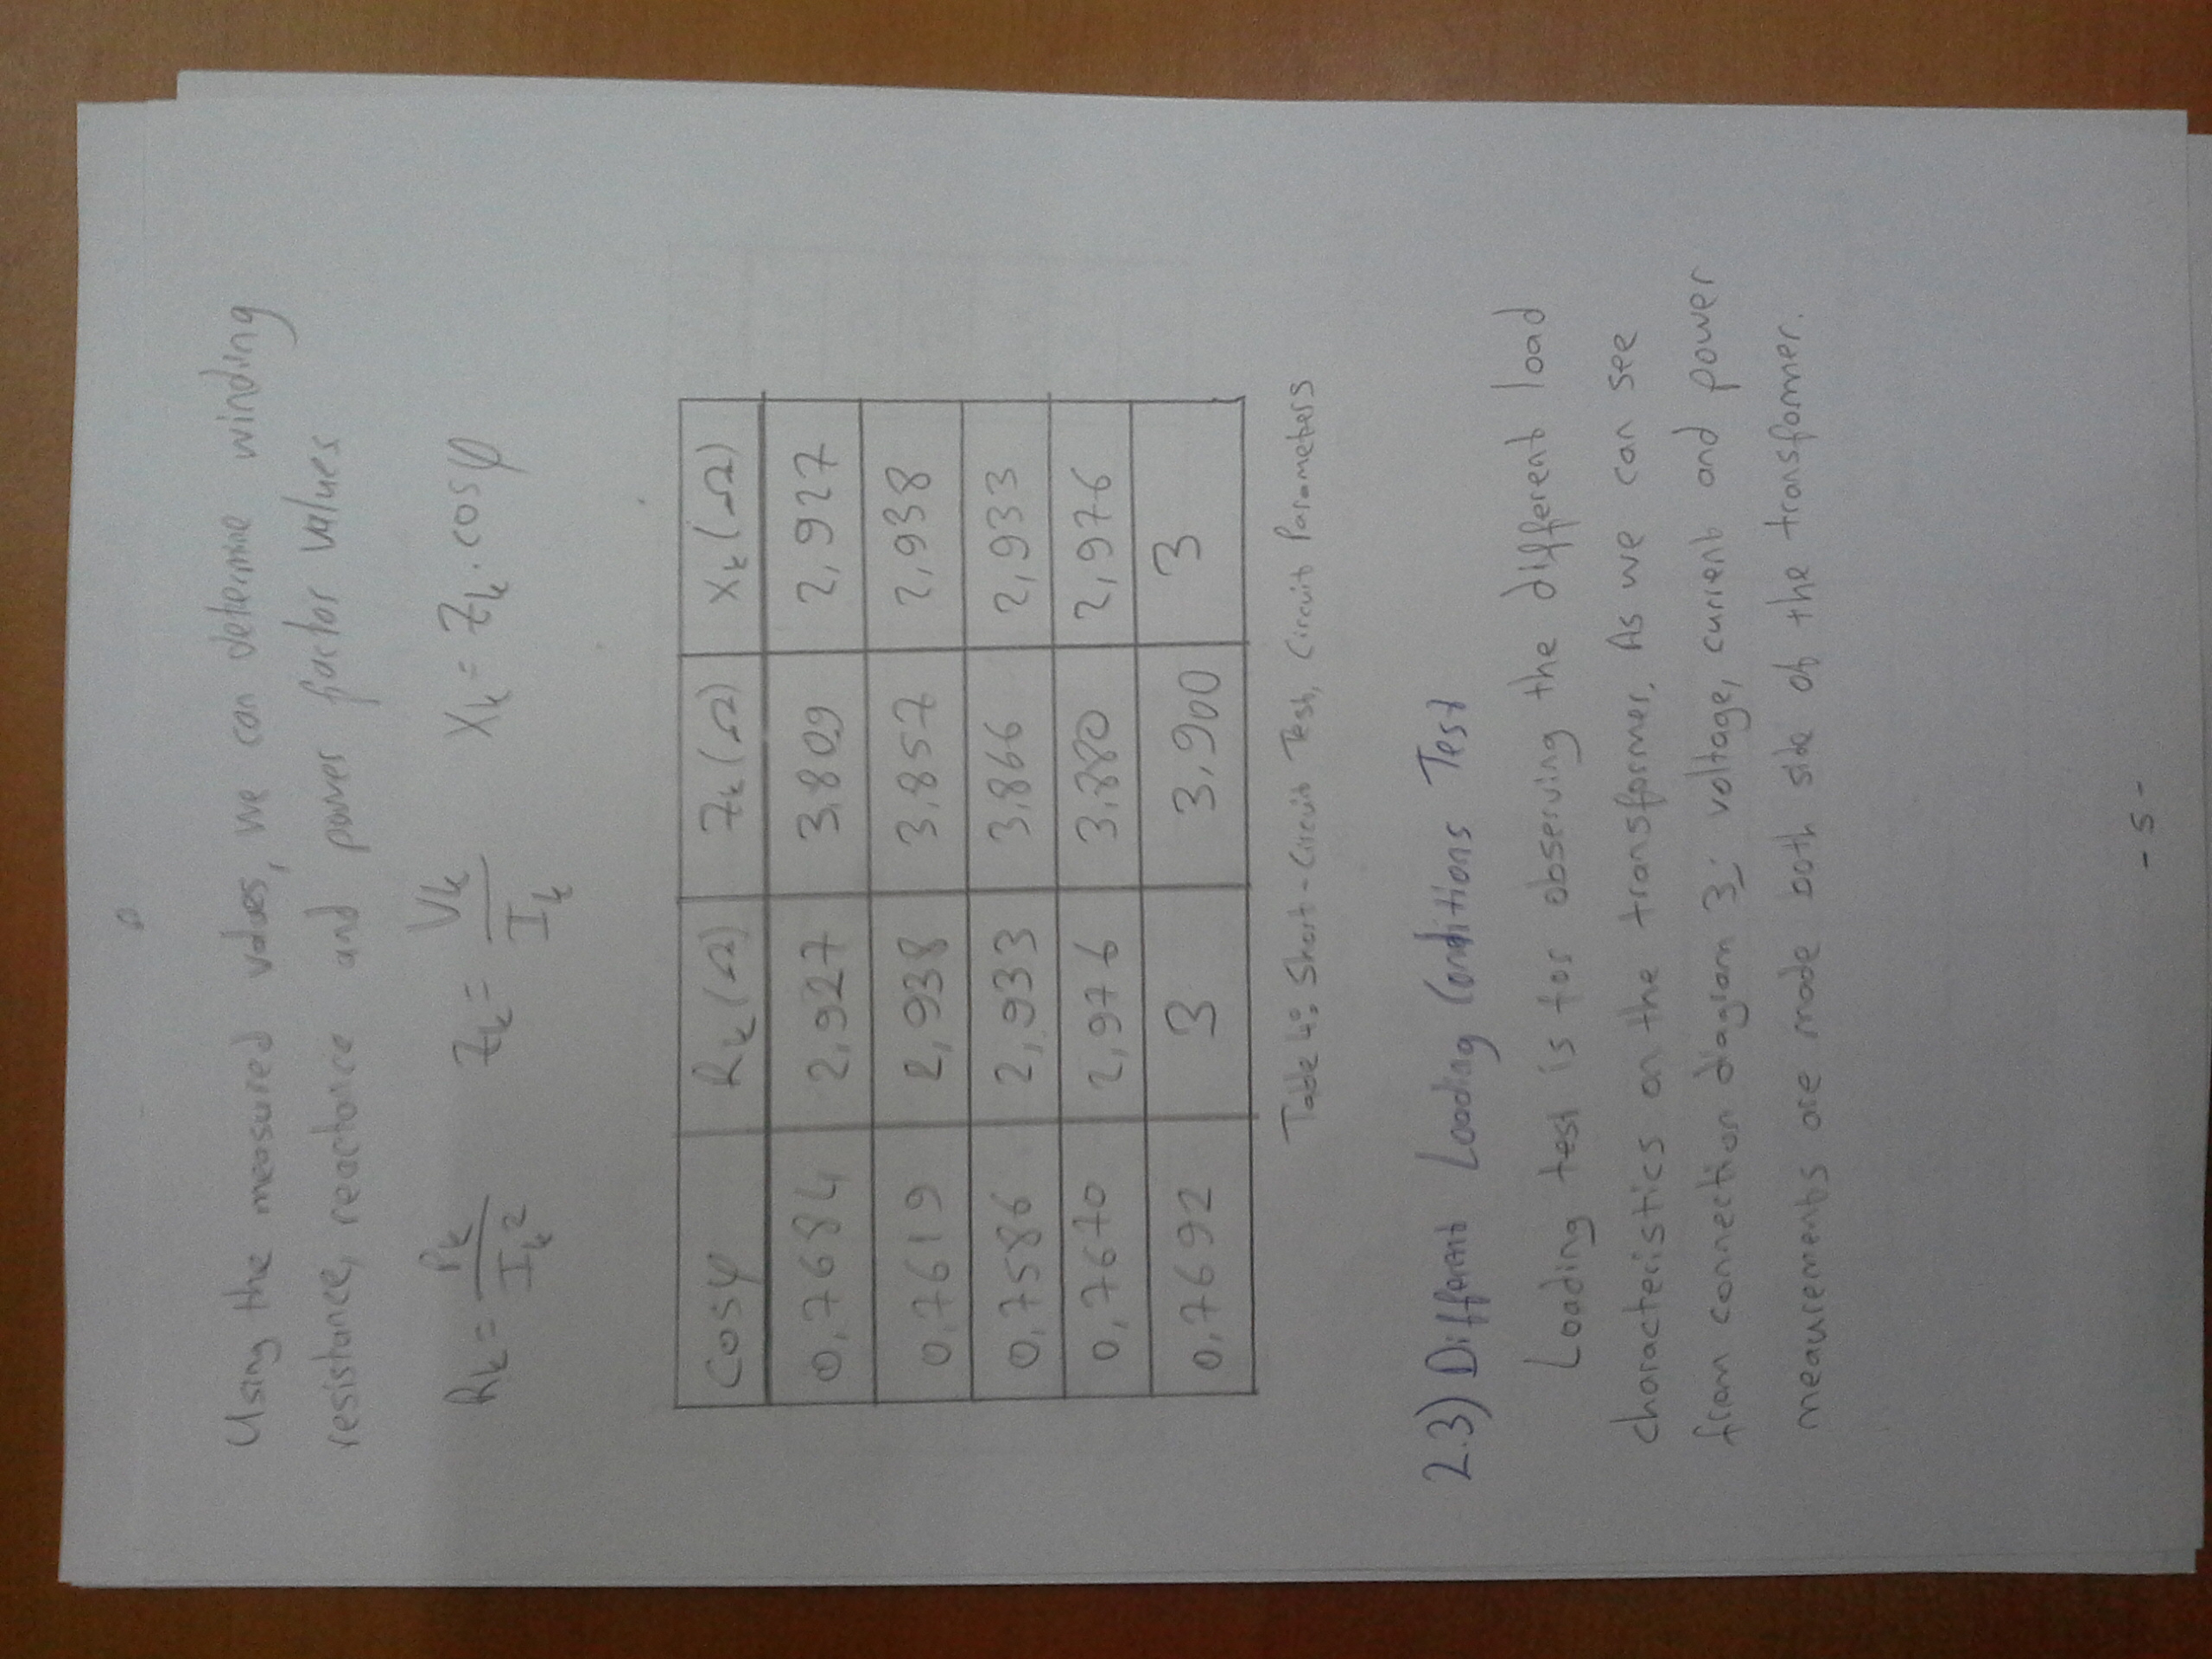 Using the measured values, we can determine winding
resistance, reactance and power factor values
Rk = Pk / Ik² Zk = Vk / Ik Xk = Zk . cosφ
Cosφ Rk (Ω) Zk (Ω) Xk (Ω)
0,7684 2,927 3,809 2,927
0,7619 2,938 3,857 2,938
0,7586 2,933 3,866 2,933
0,7670 2,976 3,880 2,976
0,7692 3 3,900 3
Table 4: Short-Circuit Test, Circuit Parameters
2.3) Different Loading Conditions Test
Loading test is for observing the different load
characteristics on the transformer. As we can see
from connection diagram 3; voltage, current and power
meaurements are made both side of the transformer.
- 5 -